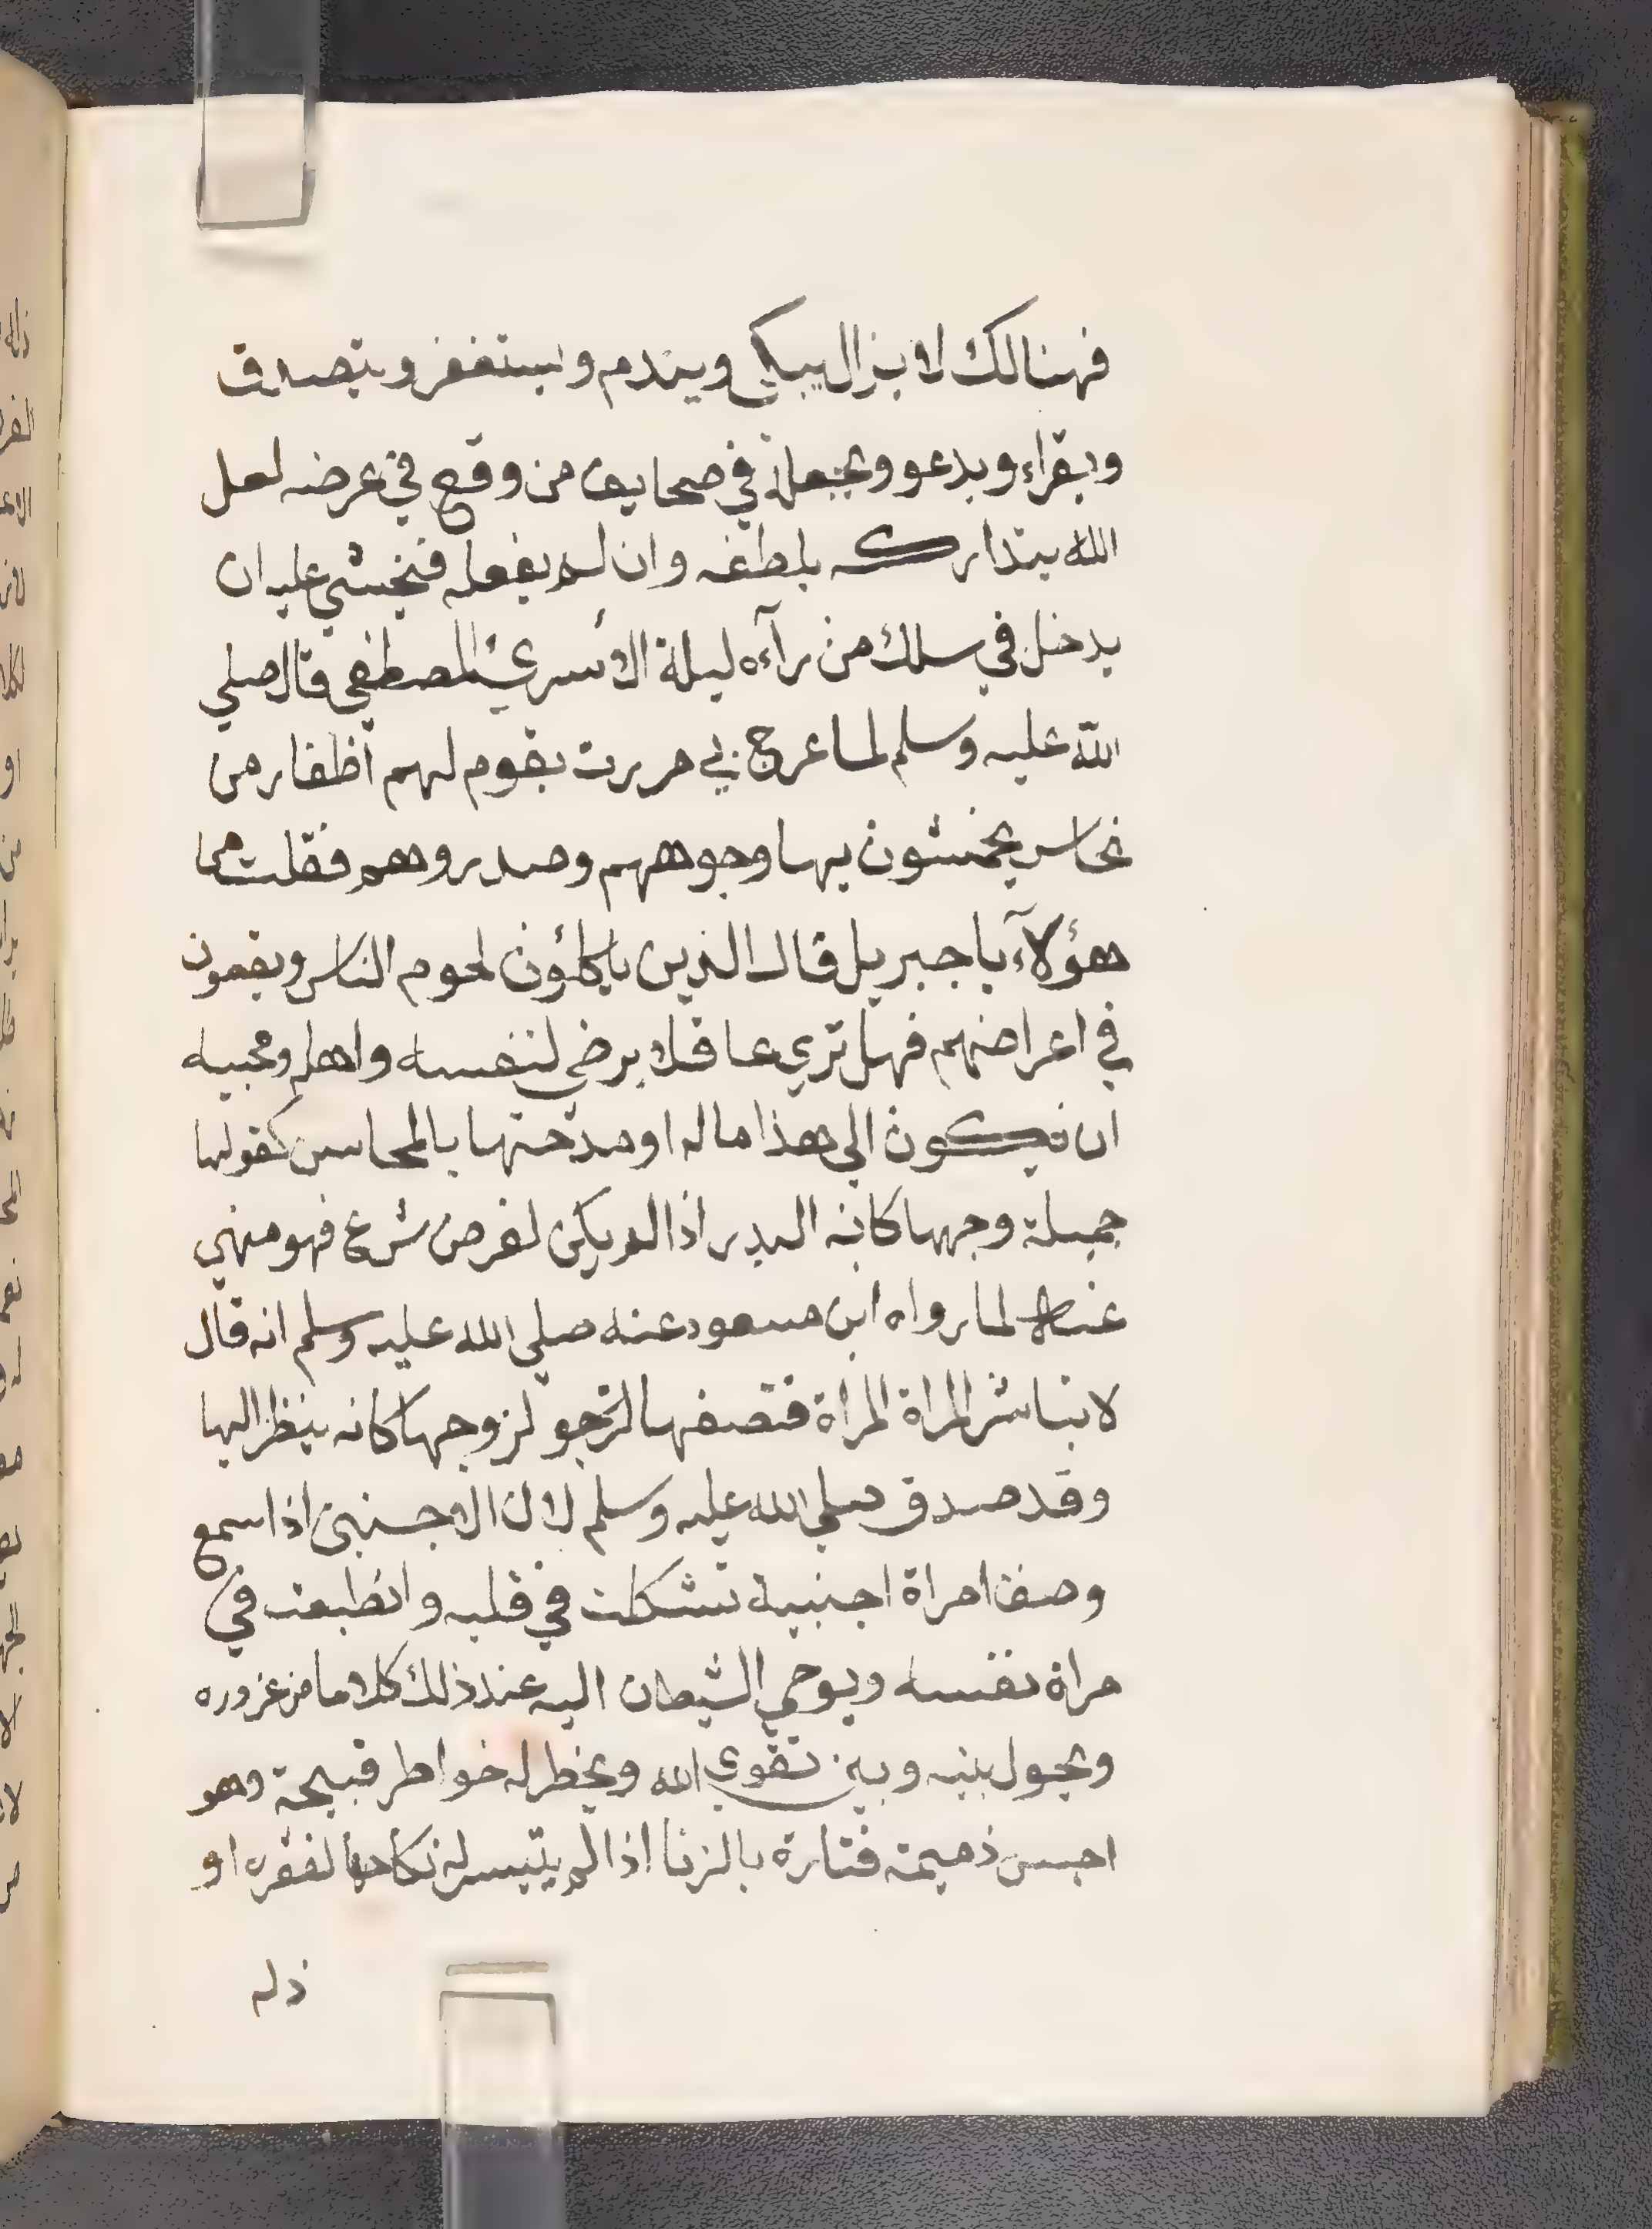 فهنالك لا يزال يبكي ويندم ويستغفر ويتصدق
ويقراء ويدعو ويجعله في صحايف من وقع في عرضه لعل
الله يتداركه بلطفه وان لم يفعل فنخشي عليه ان
يدخل في سلك من رآءه ليلة الأسري المصطفي قال صلي
الله عليه وسلم لما عرج بي مررت بقوم لهم أظفار من
نحاس يخمشون بها وجوههم وصدروهم فقلت ما
هؤلآء يا جبريل قال الذين ياكلؤن لحوم الناس ويقعون
في اعراضهم فهل تري عاقلا يرضي لنفسه واهله ومحبيه
ان يكون الي هذا ماله او مدحتها بالمحاسن كقولها
جميلة وجهها كانه البدر اذا لم يكن لغرض شرع فهو منهي
عنه لما رواه ابن مسعود عنه صلي الله عليه وسلم انه قال
لا تباشر المراة المراة فتصفها لزوجها كانه ينظر اليها
وقد صدق صلي الله عليه وسلم لان الاجنبي اذا سمع
وصف امراة اجنبية تشكلت في قلبه وانطبعت في
مراة نفسه ويوحي الشيطان اليه عند ذلك كلاما من غروره
ويحول بينه وبين تقوي الله ويخطر له خواطر قبيحة وهو
احبس ذميمة فتارة بالزنا اذا لم يتيسر له نكاحها لفقره او
ذله